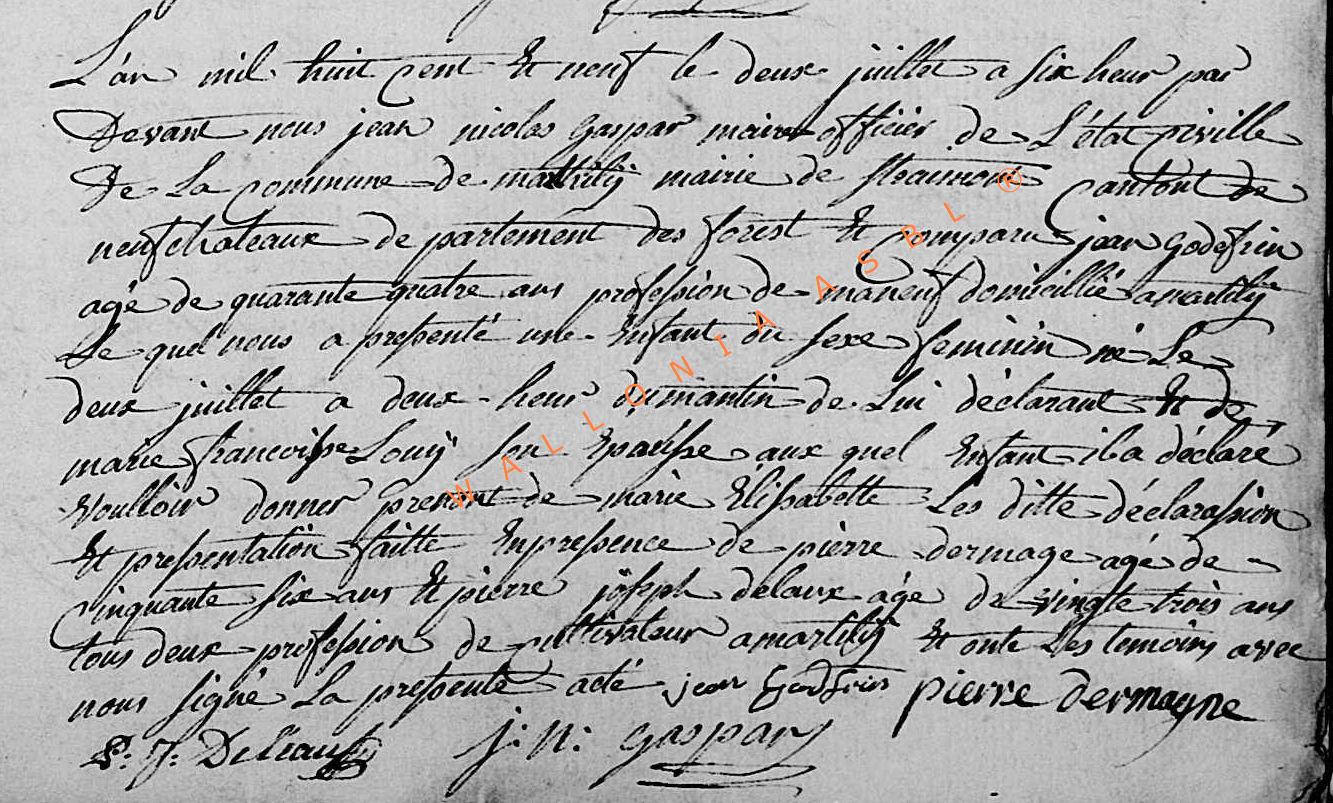 L'an mil huit cent Et neuf le deux juillet a six heur par
Devant nous jean nicolas gaspar maire officier de L'état civille
De La commune de martilÿ mairie de Straimont cantont de
neufchateaux de partement des forest Et comparu jean godefrin
agé de quarante quatre ans profession de maneuf domicillié a martilÿ
Le quel nous a pressenté une Enfant du sexe feminin né Le
deux juillet a deux heur du mantin de Lui déclarant Et de
marie francoisse Louÿ son Epousse aux quel Enfant il a déclaré
voulloir donner prenont de marie Elissabette Les ditte déclarassion
Et pressentation faitte En pressence de pierre dermage agé de
cinquante six ans Et pierre joseph delaux agé de vingte trois ans
tous deux profession de cultivateur a martilÿ Et onte Les temoins avec
nous signé La pressente acté jean godfrin pierre dermagne
P: J: Deleau j: n: gaspar
WALLONIA ASBL ®